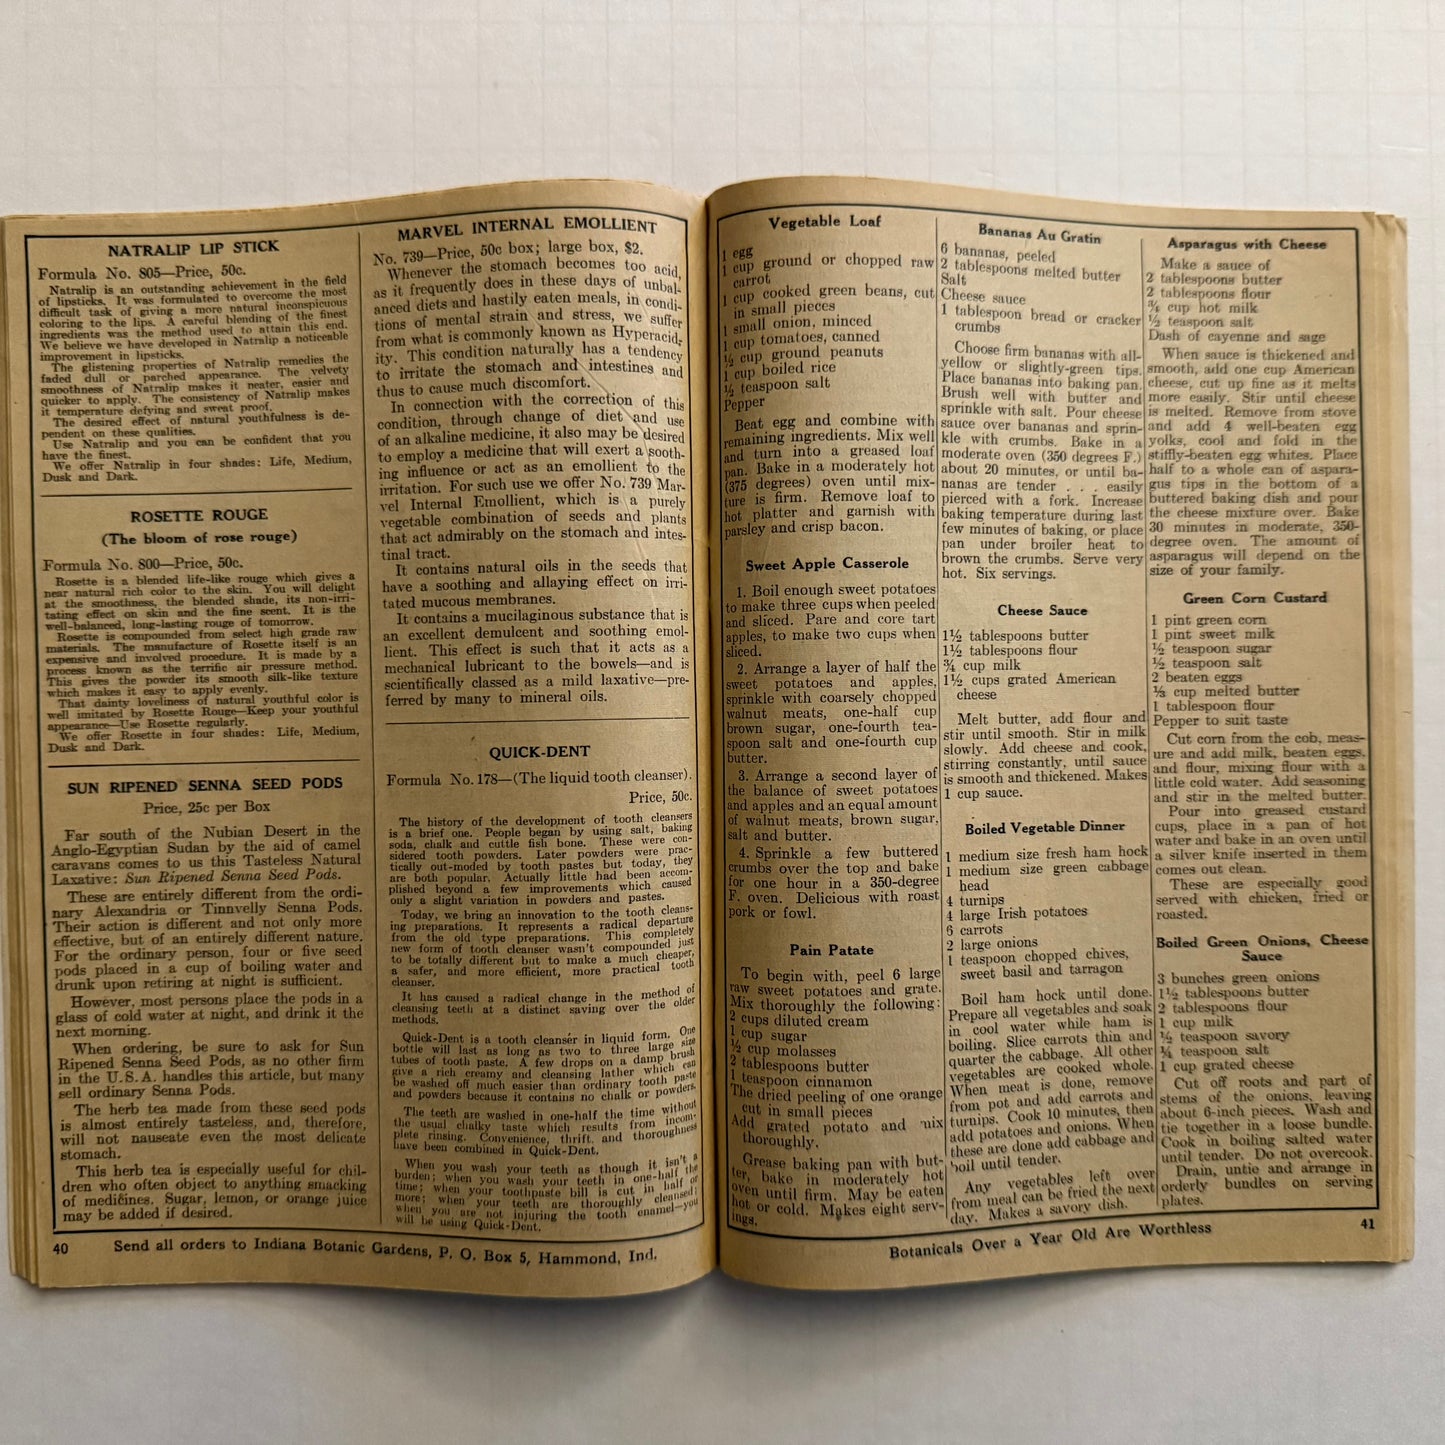 NATRALIP LIP STICK
Formula No. 805—Price, 50c.
Natralip is an outstanding achievement in the field
of lipsticks. It was formulated to overcome the most
difficult task of giving a more natural inconspicuous
coloring to the lips. A careful blending of the finest
ingredients was the method used to attain this end.
We believe we have developed in Natralip a noticeable
improvement in lipsticks.
The glistening properties of Natralip remedies the
faded dull or parched appearance. The velvety
smoothness of Natralip makes it neater, easier and
quicker to apply. The consistency of Natralip makes
it temperature defying and sweat proof.
The desired effect of natural youthfulness is de-
pendent on these qualities.
Use Natralip and you can be confident that you
have the finest.
We offer Natralip in four shades: Life, Medium,
Dusk and Dark.
ROSETTE ROUGE
(The bloom of rose rouge)
Formula No. 800—Price, 50c.
Rosette is a blended life-like rouge which gives a
near natural rich color to the skin. You will delight
at the smoothness, the blended shade, its non-irri-
tating effect on skin and the fine scent. It is the
well-balanced, long-lasting rouge of tomorrow.
Rosette is compounded from select high grade raw
materials. The manufacture of Rosette itself is an
expensive and involved procedure. It is made by a
process known as the terrific air pressure method.
This gives the powder its smooth silk-like texture
which makes it easy to apply evenly.
That dainty loveliness of natural youthful color is
well imitated by Rosette Rouge—Keep your youthful
appearance—Use Rosette regularly.
We offer Rosette in four shades: Life, Medium,
Dusk and Dark.
SUN RIPENED SENNA SEED PODS
Price, 25c per Box
Far south of the Nubian Desert in the
Anglo-Egyptian Sudan by the aid of camel
caravans comes to us this Tasteless Natural
Laxative: Sun Ripened Senna Seed Pods.
These are entirely different from the ordi-
nary Alexandria or Tinnvelly Senna Pods.
Their action is different and not only more
effective, but of an entirely different nature.
For the ordinary person, four or five seed
pods placed in a cup of boiling water and
drunk upon retiring at night is sufficient.
However, most persons place the pods in a
glass of cold water at night, and drink it the
next morning.
When ordering, be sure to ask for Sun
Ripened Senna Seed Pods, as no other firm
in the U.S.A. handles this article, but many
sell ordinary Senna Pods.
The herb tea made from these seed pods
is almost entirely tasteless, and, therefore,
will not nauseate even the most delicate
stomach.
This herb tea is especially useful for chil-
dren who often object to anything smacking
of medicines. Sugar, lemon, or orange juice
may be added if desired.
MARVEL INTERNAL EMOLLIENT
No. 739—Price, 50c box; large box, $2.
Whenever the stomach becomes too acid,
as it frequently does in these days of unbal-
anced diets and hastily eaten meals, in condi-
tions of mental strain and stress, we suffer
from what is commonly known as Hyperacid-
ity. This condition naturally has a tendency
to irritate the stomach and intestines and
thus to cause much discomfort.
In connection with the correction of this
condition, through change of diet and use
of an alkaline medicine, it also may be desired
to employ a medicine that will exert a sooth-
ing influence or act as an emollient to the
irritation. For such use we offer No. 739 Mar-
vel Internal Emollient, which is a purely
vegetable combination of seeds and plants
that act admirably on the stomach and intes-
tinal tract.
It contains natural oils in the seeds that
have a soothing and allaying effect on irri-
tated mucous membranes.
It contains a mucilaginous substance that is
an excellent demulcent and soothing emol-
lient. This effect is such that it acts as a
mechanical lubricant to the bowels—and is
scientifically classed as a mild laxative—pre-
ferred by many to mineral oils.
QUICK-DENT
Formula No. 178—(The liquid tooth cleanser).
Price, 50c.
The history of the development of tooth cleansers
is a brief one. People began by using salt, baking
soda, chalk and cuttle fish bone. These were con-
sidered tooth powders. Later powders were prac-
tically out-moded by tooth pastes but today, they
are both popular. Actually little had been accom-
plished beyond a few improvements which caused
only a slight variation in powders and pastes.
Today, we bring an innovation to the tooth cleans-
ing preparations. It represents a radical departure
from the old type preparations. This completely
new form of tooth cleanser wasn't compounded just
to be totally different but to make a much cheaper,
a safer, and more efficient, more practical tooth
cleanser.
It has caused a radical change in the method of
cleansing teeth at a distinct saving over the older
methods.
Quick-Dent is a tooth cleanser in liquid form. One
bottle will last as long as two to three large size
tubes of tooth paste. A few drops on a damp brush
give a rich creamy and cleansing lather which can
be washed off much easier than ordinary tooth paste
and powders because it contains no chalk or powders.
The teeth are washed in one-half the time without
the usual chalky taste which results from incom-
plete rinsing. Convenience, thrift and thoroughness
have been combined in Quick-Dent.
When you wash your teeth as though it isn't a
burden; when you wash your teeth in one-half the
time; when your toothpaste bill is cut in half or
more; when your teeth are thoroughly cleansed;
when you are not injuring the tooth enamel—you
will be using Quick-Dent.
40 Send all orders to Indiana Botanic Gardens, P. O. Box 5, Hammond, Ind.
Vegetable Loaf
1 egg
1 cup ground or chopped raw
carrot
1 cup cooked green beans, cut
in small pieces
1 small onion, minced
1 cup tomatoes, canned
½ cup ground peanuts
1 cup boiled rice
½ teaspoon salt
Pepper
Beat egg and combine with
remaining ingredients. Mix well
and turn into a greased loaf
pan. Bake in a moderately hot
(375 degrees) oven until mix-
ture is firm. Remove loaf to
hot platter and garnish with
parsley and crisp bacon.
Sweet Apple Casserole
1. Boil enough sweet potatoes
to make three cups when peeled
and sliced. Pare and core tart
apples, to make two cups when
sliced.
2. Arrange a layer of half the
sweet potatoes and apples,
sprinkle with coarsely chopped
walnut meats, one-half cup
brown sugar, one-fourth tea-
spoon salt and one-fourth cup
butter.
3. Arrange a second layer of
the balance of sweet potatoes
and apples and an equal amount
of walnut meats, brown sugar,
salt and butter.
4. Sprinkle a few buttered
crumbs over the top and bake
for one hour in a 350-degree
F. oven. Delicious with roast
pork or fowl.
Pain Patate
To begin with, peel 6 large
raw sweet potatoes and grate.
Mix thoroughly the following:
2 cups diluted cream
1 cup sugar
½ cup molasses
2 tablespoons butter
1 teaspoon cinnamon
The dried peeling of one orange
cut in small pieces
Add grated potato and mix
thoroughly.
Grease baking pan with but-
ter, bake in moderately hot
oven until firm. May be eaten
hot or cold. Makes eight serv-
ings.
Bananas Au Gratin
6 bananas, peeled
2 tablespoons melted butter
Salt
Cheese sauce
1 tablespoon bread or cracker
crumbs
Choose firm bananas with all-
yellow or slightly-green tips.
Place bananas into baking pan.
Brush well with butter and
sprinkle with salt. Pour cheese
sauce over bananas and sprin-
kle with crumbs. Bake in a
moderate oven (350 degrees F.)
about 20 minutes, or until ba-
nanas are tender . . . easily
pierced with a fork. Increase
baking temperature during last
few minutes of baking, or place
pan under broiler heat to
brown the crumbs. Serve very
hot. Six servings.
Cheese Sauce
1½ tablespoons butter
1½ tablespoons flour
¾ cup milk
1½ cups grated American
cheese
Melt butter, add flour and
stir until smooth. Stir in milk
slowly. Add cheese and cook,
stirring constantly, until sauce
is smooth and thickened. Makes
1 cup sauce.
Boiled Vegetable Dinner
1 medium size fresh ham hock
1 medium size green cabbage
head
4 turnips
4 large Irish potatoes
6 carrots
2 large onions
1 teaspoon chopped chives,
sweet basil and tarragon
Boil ham hock until done.
Prepare all vegetables and soak
in cool water while ham is
boiling. Slice carrots thin and
quarter the cabbage. All other
vegetables are cooked whole.
When meat is done, remove
from pot and add carrots and
turnips. Cook 10 minutes, then
add potatoes and onions. When
these are done add cabbage and
boil until tender.
Any vegetables left over
from meal can be fried the next
day. Makes a savory dish.
Asparagus with Cheese
Make a sauce of
2 tablespoons butter
2 tablespoons flour
¾ cup hot milk
½ teaspoon salt
Dash of cayenne and sage
When sauce is thickened and
smooth, add one cup American
cheese, cut up fine as it melts
more easily. Stir until cheese
is melted. Remove from stove
and add 4 well-beaten egg
yolks, cool and fold in the
stiffly-beaten egg whites. Place
half to a whole can of aspara-
gus tips in the bottom of a
buttered baking dish and pour
the cheese mixture over. Bake
30 minutes in moderate, 350-
degree oven. The amount of
asparagus will depend on the
size of your family.
Green Corn Custard
1 pint green corn
1 pint sweet milk
½ teaspoon sugar
½ teaspoon salt
2 beaten eggs
⅓ cup melted butter
1 tablespoon flour
Pepper to suit taste
Cut corn from the cob, meas-
ure and add milk, beaten eggs,
and flour, mixing flour with a
little cold water. Add seasoning
and stir in the melted butter.
Pour into greased custard
cups, place in a pan of hot
water and bake in an oven until
a silver knife inserted in them
comes out clean.
These are especially good
served with chicken, fried or
roasted.
Boiled Green Onions, Cheese
Sauce
3 bunches green onions
1½ tablespoons butter
2 tablespoons flour
1 cup milk
½ teaspoon savory
¼ teaspoon salt
1 cup grated cheese
Cut off roots and part of
stems of the onions, leaving
about 6-inch pieces. Wash and
tie together in a loose bundle.
Cook in boiling salted water
until tender. Do not overcook.
Drain, untie and arrange in
orderly bundles on serving
plates.
Botanicals Over a Year Old Are Worthless 41